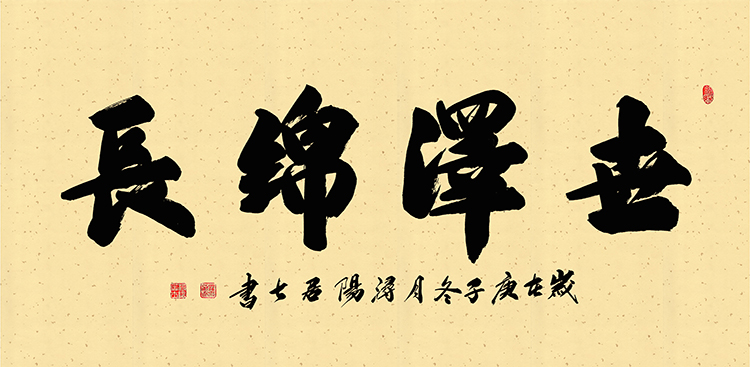 世澤綿長
歲在庚子冬月潯陽居士書